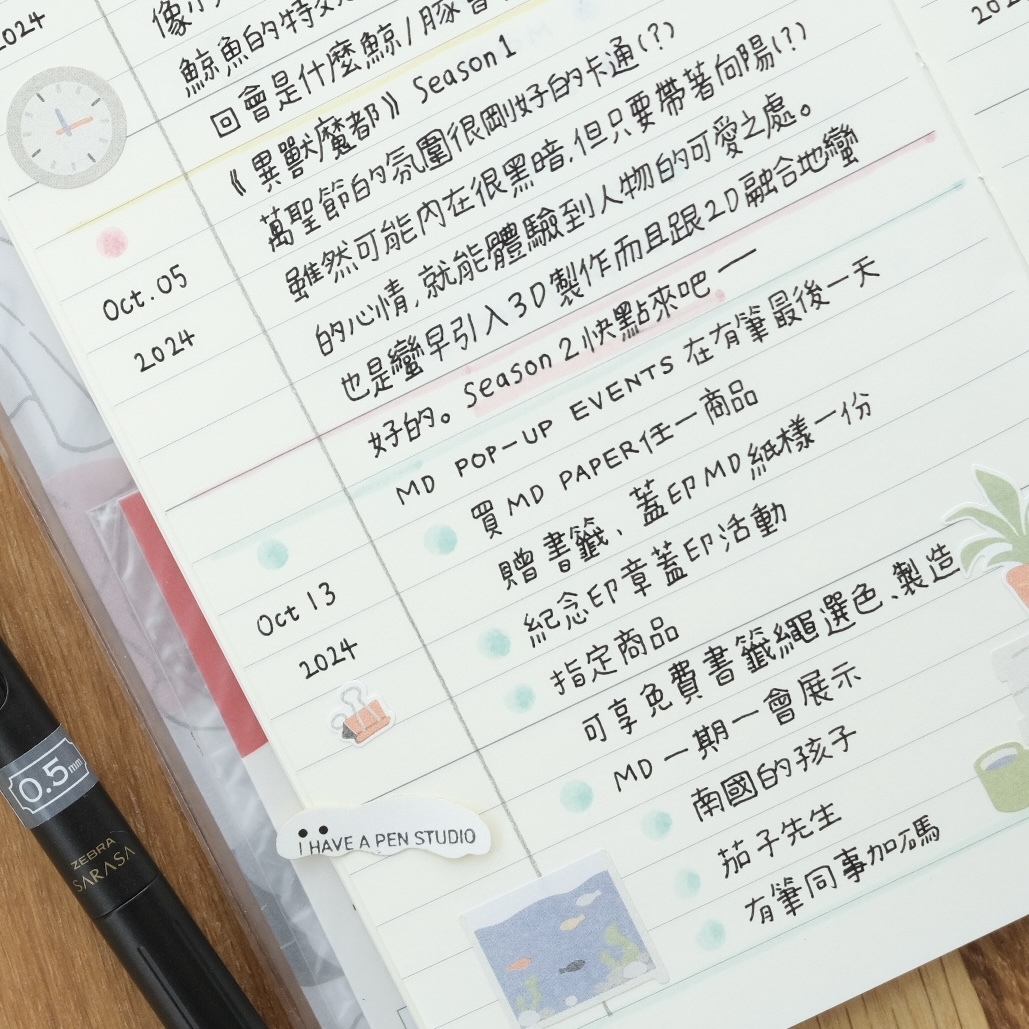 2024
鯨魚的特
回會是什麼鯨/豚
《異獸魔都》 Season 1
萬聖節的氛圍很剛好的卡通(?)
雖然可能內在很黑暗,但只要帶著向陽(?)
的心情,就能體驗到人物的可愛之處。
也是蠻早引入3D製作而且跟2D融合地蠻
好的。Season 2 快點來吧 —
Oct. 05
2024
MD POP-UP EVENTS 在有筆最後一天
買 MD PAPER 任一商品
贈書籤、蓋印MD紙樣一份
紀念印章蓋印活動
指定商品
可享免費書籤繩選色、製造
MD 一期一會展示
南國的孩子
茄子先生
有筆同事加碼
Oct 13
2024
I HAVE A PEN STUDIO
0.5mm
ZEBRA
SARASA
202